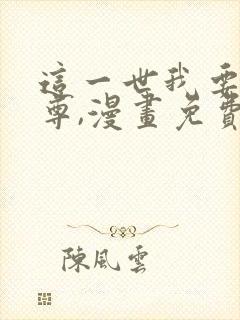 這一世我要
尊,漫畫免費
陳風雲